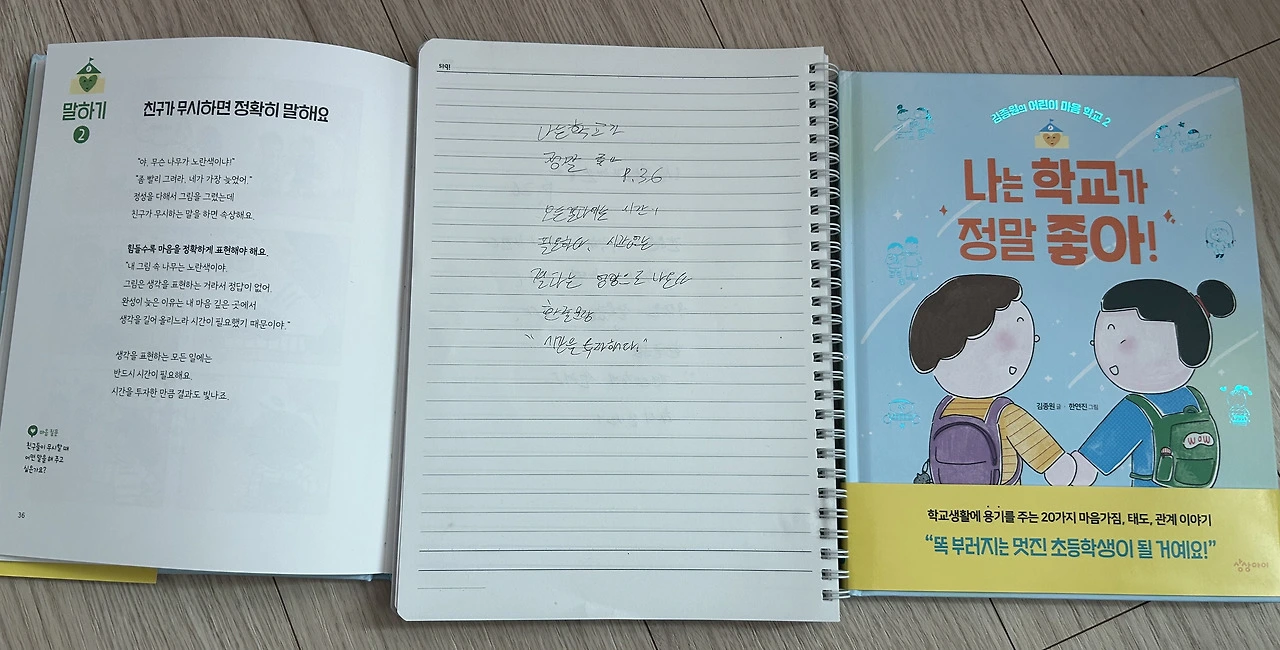 말하기
2
친구가 무시하면 정확히 말해요
"야, 무슨 나무가 노란색이냐!"
"좀 빨리 그려라. 네가 가장 늦었어."
정성을 다해서 그림을 그렸는데
친구가 무시하는 말을 하면 속상해요.
힘들수록 마음을 정확하게 표현해야 해요.
"내 그림 속 나무는 노란색이야.
그림은 생각을 표현하는 거라서 정답이 없어.
완성이 늦은 이유는 내 마음 깊은 곳에서
생각을 길어 올리느라 시간이 필요했기 때문이야."
생각을 표현하는 모든 일에는
반드시 시간이 필요해요.
시간을 투자한 만큼 결과도 빛나죠.
마음 질문
친구들이 무시할 때
어떤 말을 해 주고
싶은가요?
36
나는 학교가
정말 좋아
P.36
모든 결과에는 시간이
필요하다. 시간만큼
결과는
"시간을 투자하다."
김종원의 어린이 마음 학교 2
나는 학교가
정말 좋아!
김종원 글 · 한연진 그림
WOW
학교생활에 용기를 주는 20가지 마음가짐, 태도, 관계 이야기
"똑 부러지는 멋진 초등학생이 될 거예요!"
상상아이